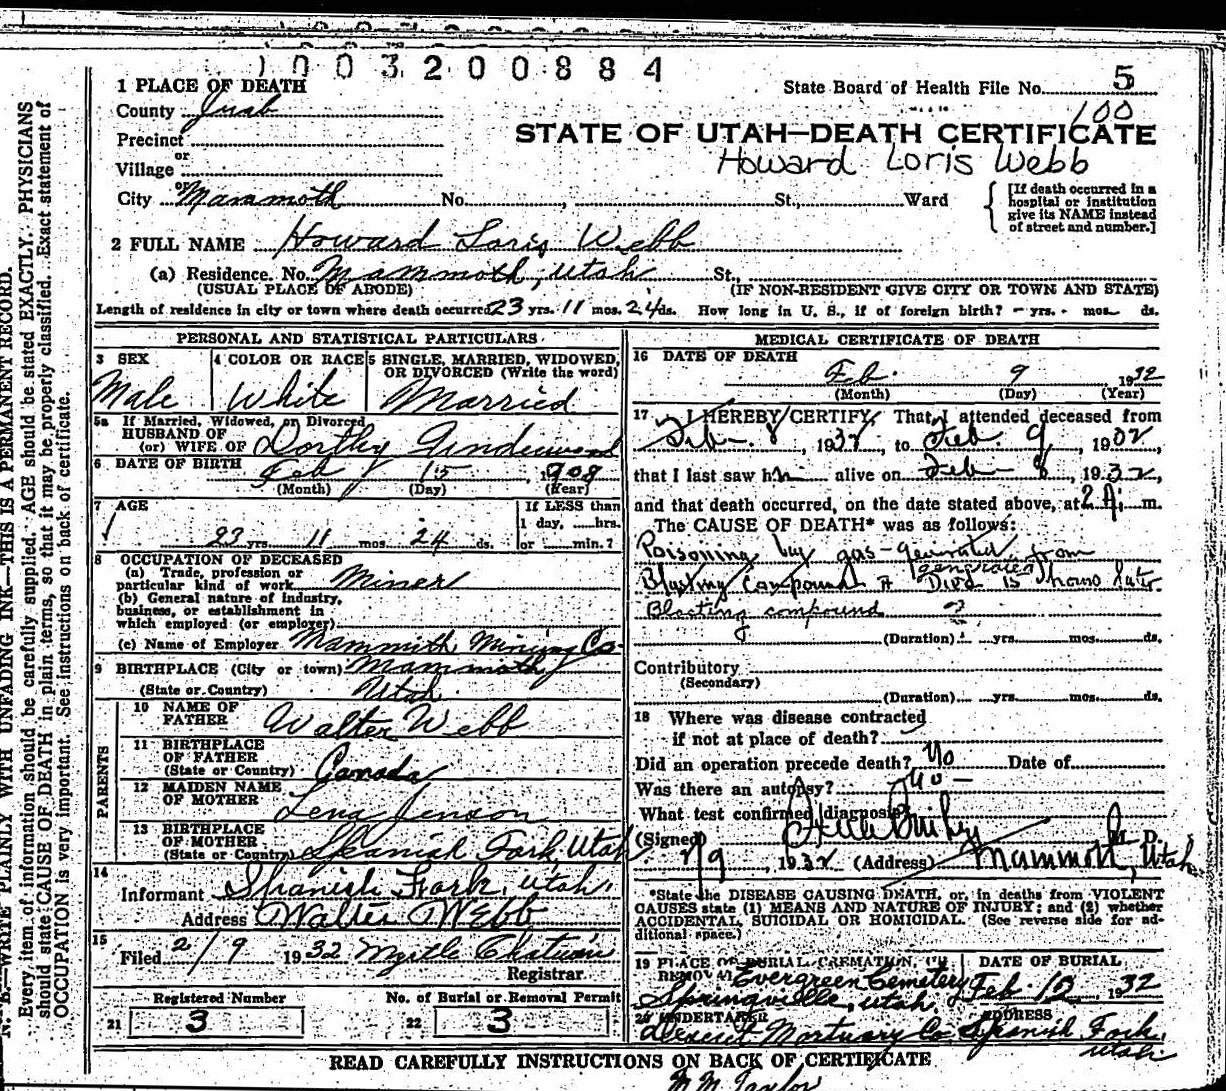 1003200884
1 PLACE OF DEATH
State Board of Health File No. 5
County Juab
100
Precinct
STATE OF UTAH—DEATH CERTIFICATE
or
Village
Howard Loris Webb
or
City Mammoth No. , St., Ward
[If death occurred in a
hospital or institution
give its NAME instead
of street and number.]
2 FULL NAME Howard Loris Webb
(a) Residence. No. Mammoth, Utah St.
(USUAL PLACE OF ABODE) (IF NON-RESIDENT GIVE CITY OR TOWN AND STATE)
Length of residence in city or town where death occurred 23 yrs. 11 mos. 24 ds. How long in U. S., if of foreign birth? - yrs. - mos. ds.
PERSONAL AND STATISTICAL PARTICULARS
3 SEX
Male
4 COLOR OR RACE
White
5 SINGLE, MARRIED, WIDOWED,
OR DIVORCED (Write the word)
Married
5a If Married, Widowed, or Divorced
HUSBAND OF
(or) WIFE OF Dorthy
6 DATE OF BIRTH
Feb 15, 1908
(Month) (Day) (Year)
7 AGE
If LESS than
1 day, hrs.
23 yrs. 11 mos. 24 ds. or min.?
8 OCCUPATION OF DECEASED
(a) Trade, profession or
particular kind of work Miner
(b) General nature of industry,
business, or establishment in
which employed (or employer)
(c) Name of Employer Mammith Mining Co.
9 BIRTHPLACE (City or town) Mammoth
(State or Country) Utah
PARENTS
10 NAME OF
FATHER Walter Webb
11 BIRTHPLACE
OF FATHER
(State or Country) Canada
12 MAIDEN NAME
OF MOTHER Lena Jenson
13 BIRTHPLACE
OF MOTHER
(State or Country) Spanish Fork, Utah
14
Informant Spanish Fork, Utah.
Address Walter Webb
15
Filed 2/9 1932 Myrtle
Registrar.
Registered Number No. of Burial or Removal Permit
21 3 22 3
MEDICAL CERTIFICATE OF DEATH
16 DATE OF DEATH
Feb. 9 1932
(Month) (Day) (Year)
17 I HEREBY CERTIFY, That I attended deceased from
Feb. 8, 1932, to Feb. 9, 1932
that I last saw him alive on Feb 8, 1932,
and that death occurred, on the date stated above, at 2 A. m.
The CAUSE OF DEATH* was as follows:
Poisoning by gas-generated from
generated
Blasting Compound Died 15 hours later
Blasting compound ?
(Duration) yrs. mos. ds.
Contributory
(Secondary)
(Duration) yrs. mos. ds.
18 Where was disease contracted
if not at place of death?
Did an operation precede death? No Date of
Was there an autopsy? No -
What test confirmed diagnosis?
(Signed) M. D.
2/9, 1932 (Address) Mammoth, Utah
*State the DISEASE CAUSING DEATH, or, in deaths from VIOLENT
CAUSES state (1) MEANS AND NATURE OF INJURY; and (2) whether
ACCIDENTAL, SUICIDAL OR HOMICIDAL. (See reverse side for ad-
ditional space.)
19 PLACE OF BURIAL, CREMATION, OR
REMOVAL Evergreen Cemetery
Springville, Utah.
DATE OF BURIAL
Feb. 12 1932
20 UNDERTAKER
Deseret Mortuary Co
ADDRESS
Spanish Fork,
Utah
READ CAREFULLY INSTRUCTIONS ON BACK OF CERTIFICATE
M. M. Taylor
N. B.—WRITE PLAINLY WITH UNFADING INK—THIS IS A PERMANENT RECORD.
Every item of information should be carefully supplied. AGE should be stated EXACTLY. PHYSICIANS
should state CAUSE OF DEATH in plain terms, so that it may be properly classified. Exact statement of
OCCUPATION is very important. See instructions on back of certificate.